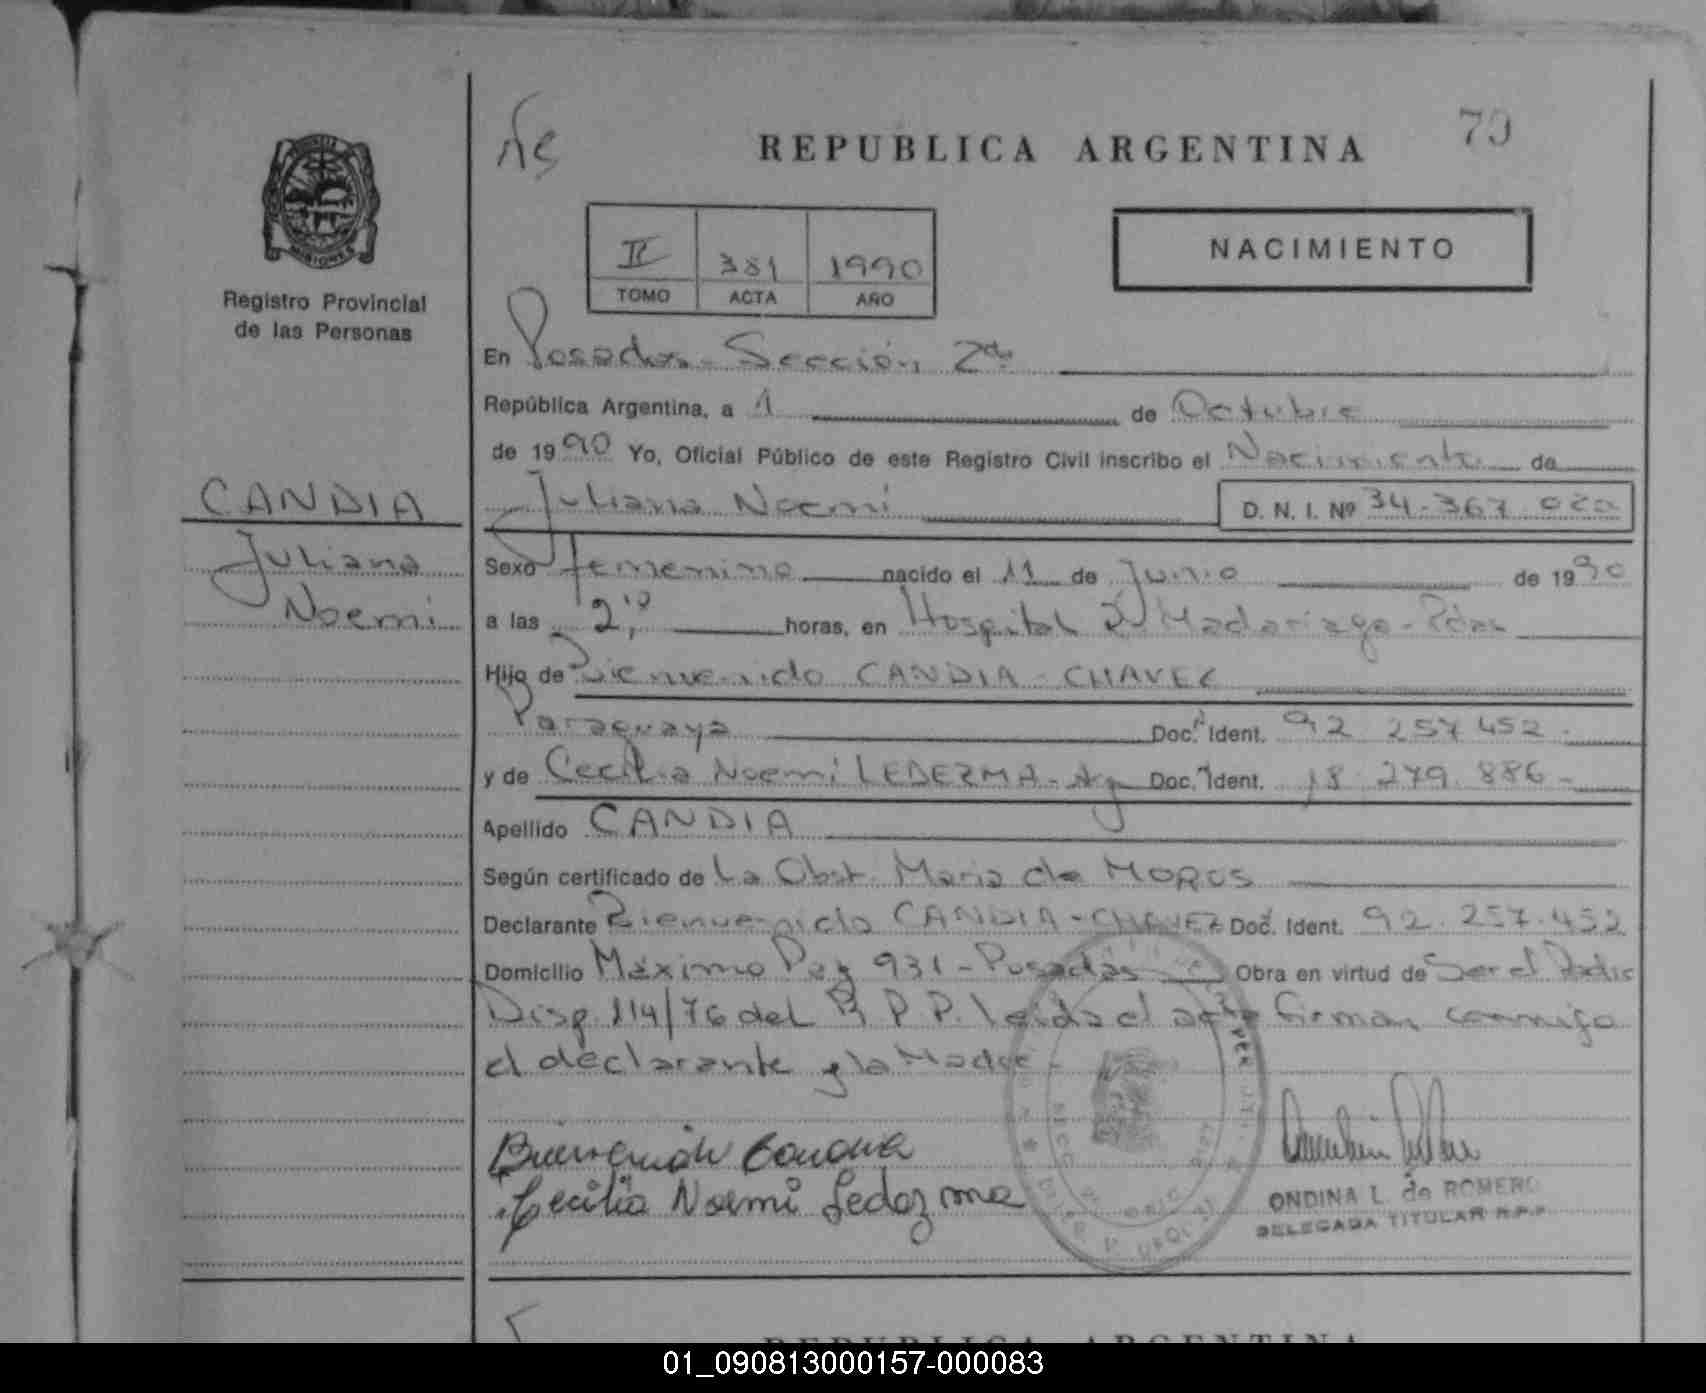 REPUBLICA ARGENTINA
79
MISIONES
Registro Provincial
de las Personas
II 381 1990
TOMO ACTA AÑO
NACIMIENTO
En Posadas - Sección 2da
República Argentina, a 1 de Octubre
de 1990 Yo, Oficial Público de este Registro Civil inscribo el Nacimiento de
CANDIA
Juliana Noemi
Juliana Noemi D. N. I. Nº 34.367.020
Sexo femenino nacido el 11 de Junio de 1990
a las 2,10 horas, en Hospital R. Madariaga - Pdas
Hijo de Bienvenido CANDIA - CHAVEZ
Paraguaya Doc. Ident. 92.257.452.
y de Cecilia Noemi LEDEZMA - Arg Doc. Ident. 18.279.886 -
Apellido CANDIA
Según certificado de La Obst. Maria de MOROS
Declarante Bienvenido CANDIA - CHAVEZ Doc. Ident. 92.257.452
Domicilio Máximo Paz 931 - Posadas Obra en virtud de Ser el Padre
Disp. 114/76 del R P P. leida el acta firman conmigo
el declarante y la Madre -
Cecilia Noemi Ledezma
ONDINA L. de ROMERO
DELEGADA TITULAR R.P.P.
REPUBLICA ARGENTINA
01_090813000157-000083